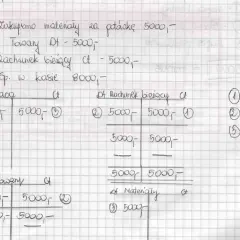 Zakupiono materiały za gotówkę 5000,-
Towary Dt - 5000,-
Rachunek bieżący Ct - 5000,-
Sp. w kasie 8000,-
Ct
Dt Rachunek bieżący Ct
①
5000,- ③
② 5000,-
5000,- ①
②
③
5000,-
5000,-
5000,-
5000,-
Ct
Dt Materiały Ct
5000,- ②
③ 5000,-
5000,-